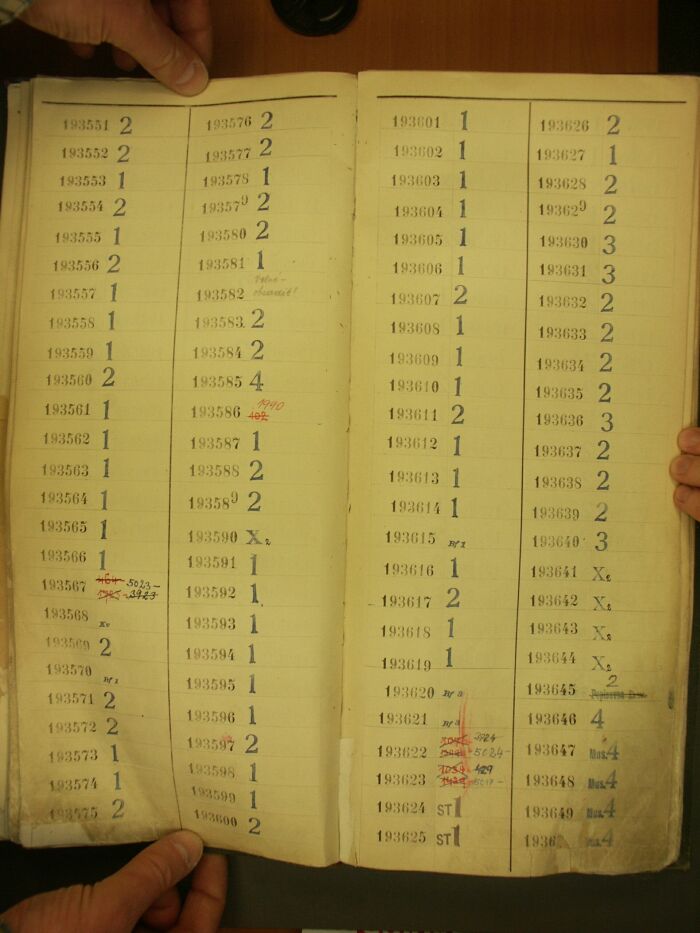 193551 2
193552 2
193553 1
193554 2
193555 1
193556 2
193557 1
193558 1
193559 1
193560 2
193561 1
193562 1
193563 1
193564 1
193565 1
193566 1
193567 5023-
3923
193568 Xv
193569 2
193570 Bf 1
193571 2
193572 2
193573 1
193574 1
193575 2
193576 2
193577 2
193578 1
193579 2
193580 2
193581 1
193582
193583 2
193584 2
193585 4
193586 402 1990
193587 1
193588 2
193589 2
193590 X2
193591 1
193592 1
193593 1
193594 1
193595 1
193596 1
193597 2
193598 1
193599 1
193600 2
193601 1
193602 1
193603 1
193604 1
193605 1
193606 1
193607 2
193608 1
193609 1
193610 1
193611 2
193612 1
193613 1
193614 1
193615 Bf 1
193616 1
193617 2
193618 1
193619 1
193620 Bf 3
193621 Bf 3
193622 3924
5024-
193623 429
193624 ST 1
193625 ST 1
193626 2
193627 1
193628 2
193629 2
193630 3
193631 3
193632 2
193633 2
193634 2
193635 2
193636 3
193637 2
193638 2
193639 2
193640 3
193641 X2
193642 X2
193643 X2
193644 X2
193645 2
193646 4
193647 Mus. 4
193648 Mus. 4
193649 Mus. 4
1936 Mus. 4